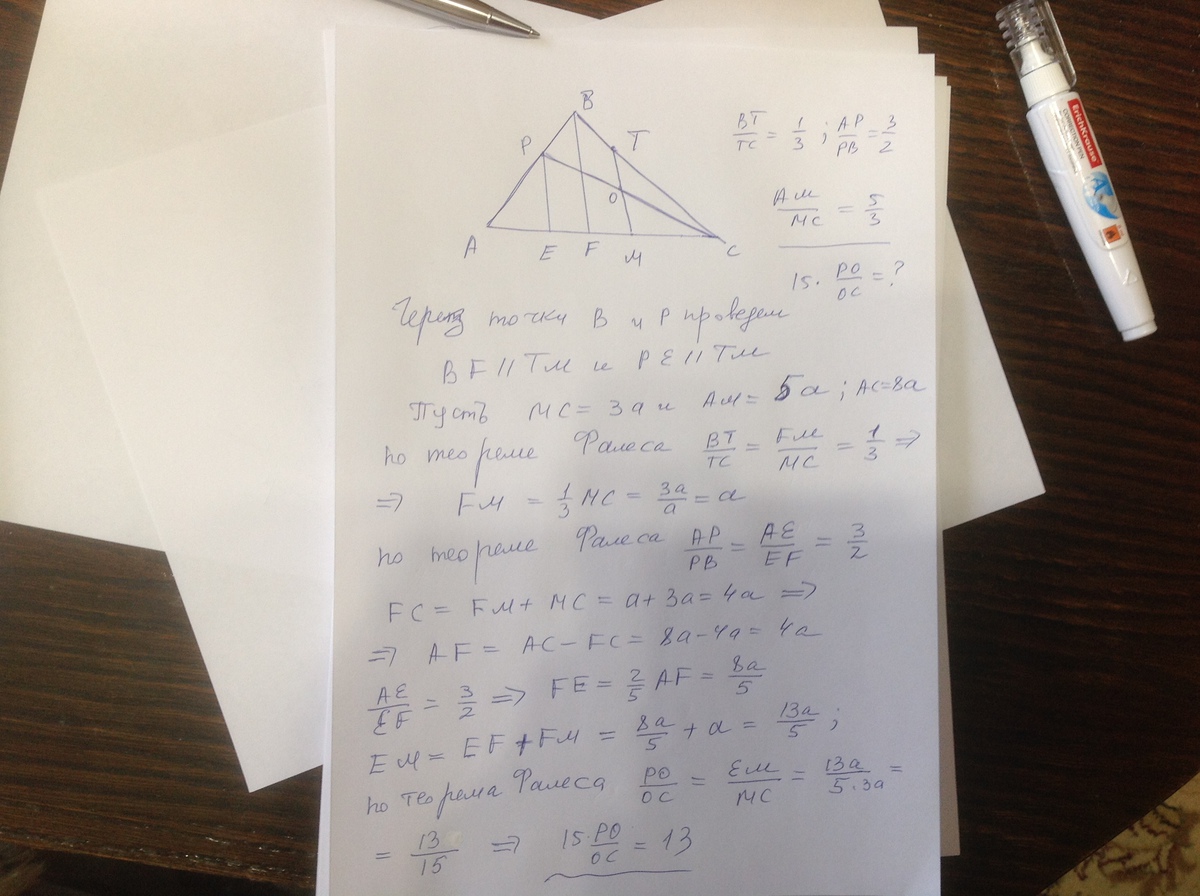 B
P
T
O
A
E
F
M
C
BT/TC = 1/3 ; AP/PB = 3/2
AM/MC = 5/3
15 · PO/OC = ?
Через точки B и P проведем
BF || TM и PE || TM
Пусть MC = 3a и AM = 5a ; AC = 8a
по теореме Фалеса BT/TC = FM/MC = 1/3 ⇒
⇒ FM = 1/3 MC = 3a/a = a
по теореме Фалеса AP/PB = AE/EF = 3/2
FC = FM + MC = a + 3a = 4a ⇒
⇒ AF = AC − FC = 8a − 4a = 4a
AE/EF = 3/2 ⇒ FE = 2/5 AF = 8a/5
EM = EF + FM = 8a/5 + a = 13a/5 ;
по теорема Фалеса PO/OC = EM/MC = 13a/5·3a =
= 13/15 ⇒ 15·PO/OC = 13
ErichKrause